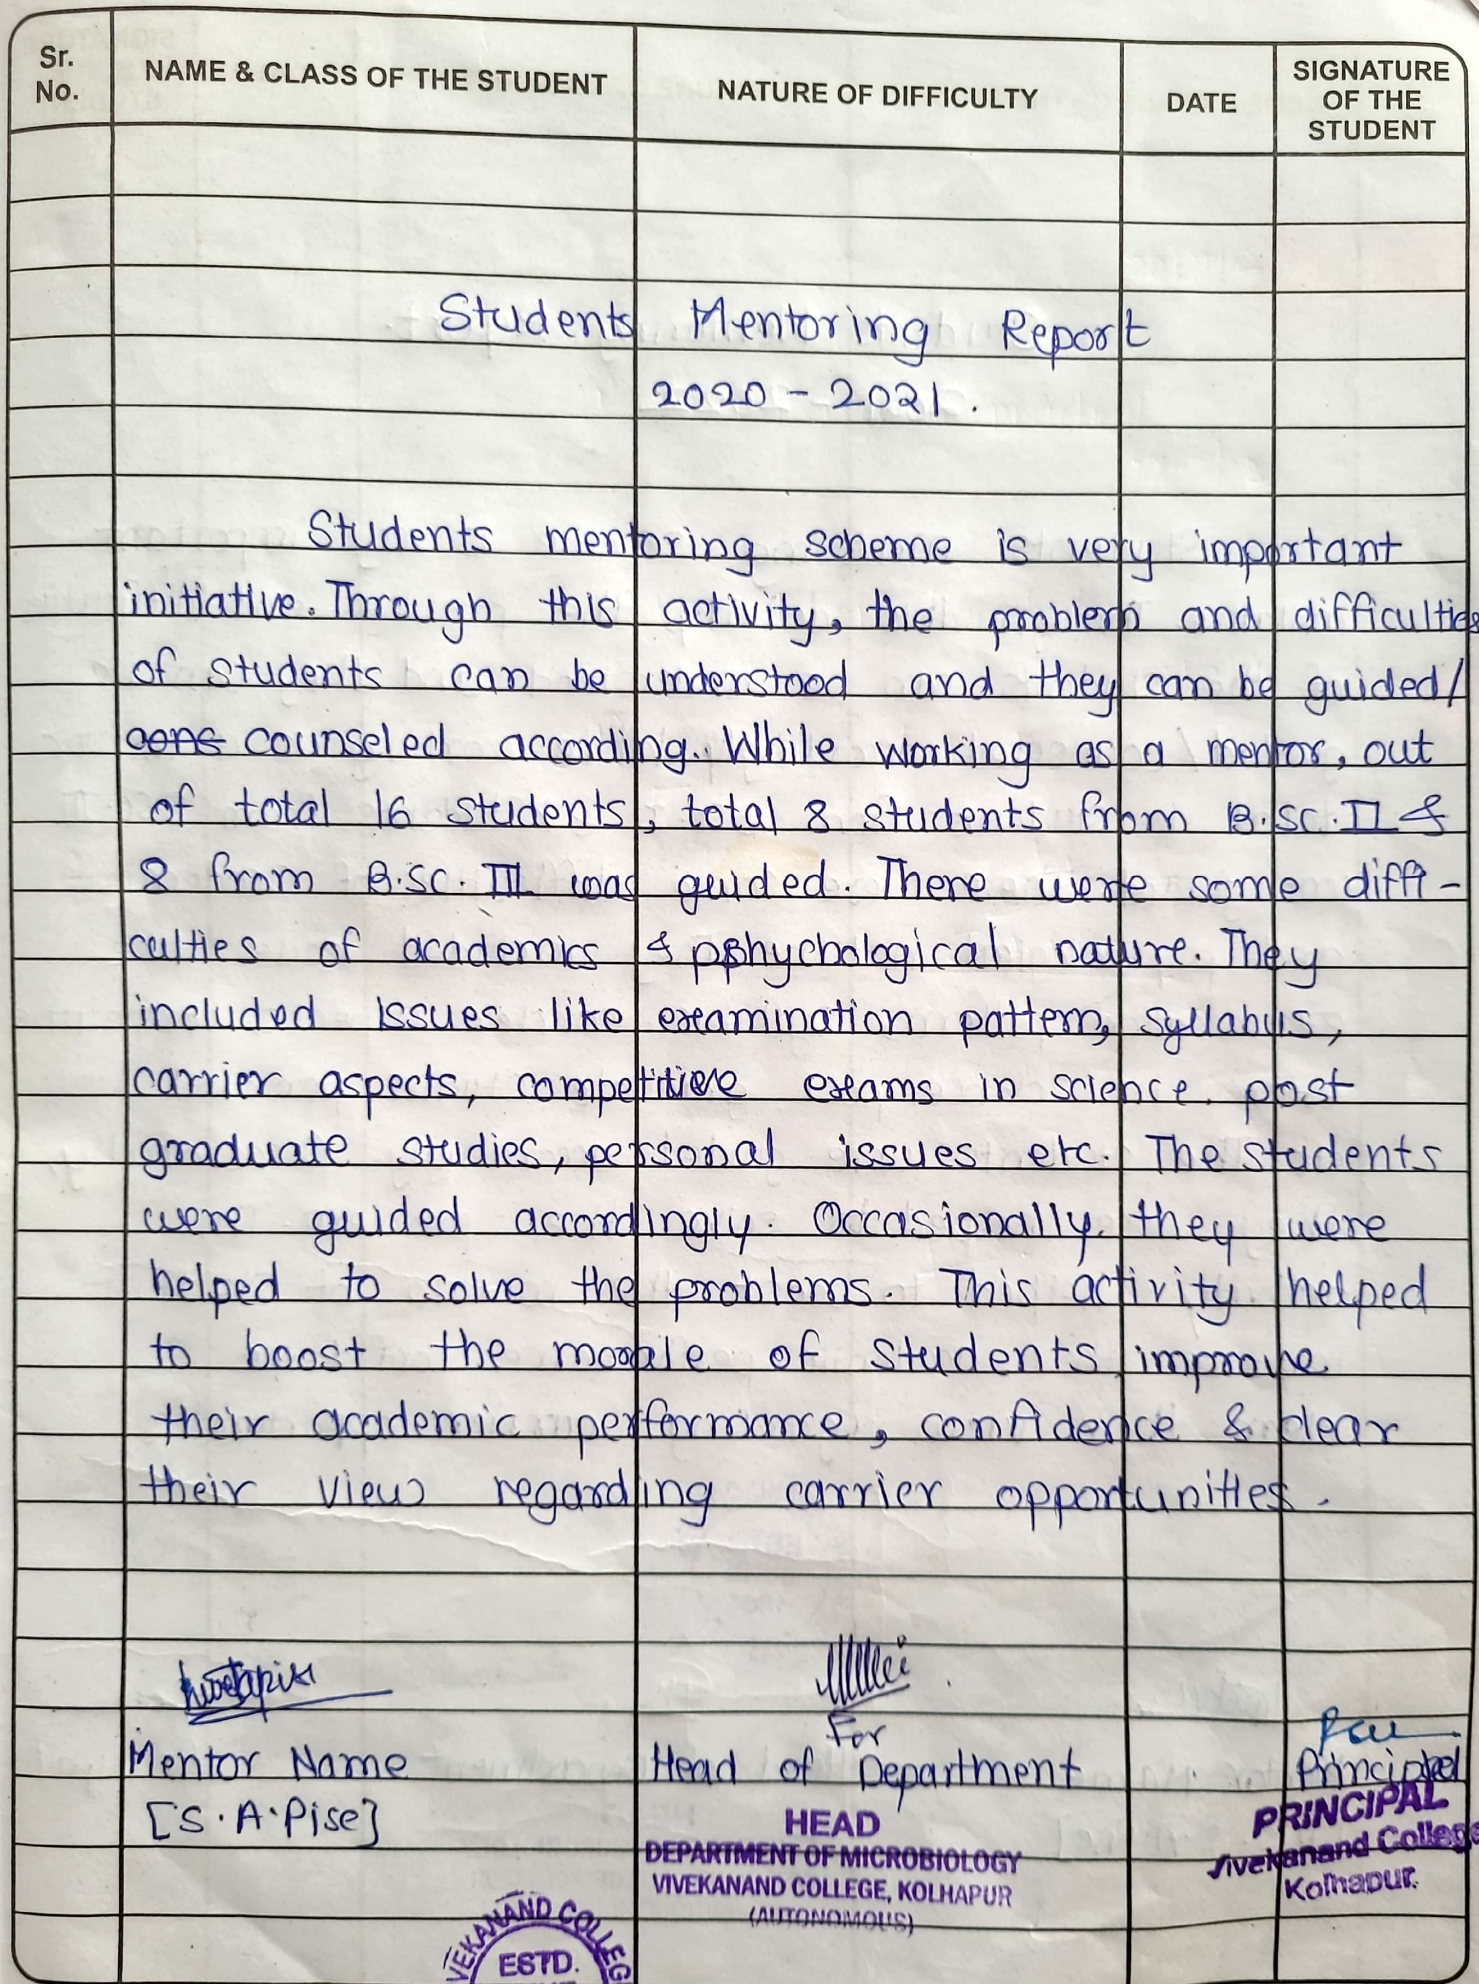 Sr. No.
NAME & CLASS OF THE STUDENT
NATURE OF DIFFICULTY
DATE
SIGNATURE OF THE STUDENT
Students Mentoring Report
2020 - 2021.
Students mentoring scheme is very important
initiative. Through this activity, the problem and difficulties
of students can be understood and they can be guided/
cons counseled according. While working as a mentor, out
of total 16 students, total 8 students from B.Sc. II &
8 from B.Sc. III was guided. There were some diffi-
culties of academics & pshychological nature. They
included issues like examination pattern, syllabus,
carrier aspects, competitive exams in science, post
graduate studies, personal issues etc. The students
were guided accordingly. Occasionally, they were
helped to solve the problems. This activity helped
to boost the morale of students improve
their academic performance, confidence & clear
their view regarding carrier opportunities.
For
Mentor Name
Head of Department
Principal
[S.A.Pise]
HEAD
DEPARTMENT OF MICROBIOLOGY
VIVEKANAND COLLEGE, KOLHAPUR
(AUTONOMOUS)
PRINCIPAL
Vivekanand College
Kolhapur.
VEKANAND COLLEG
ESTD.